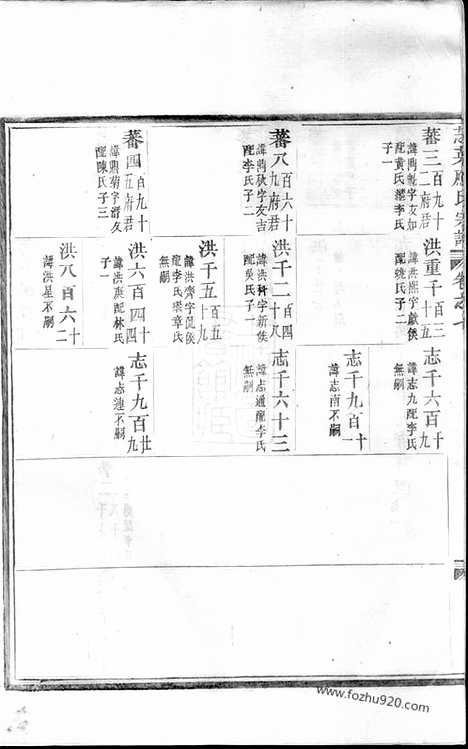 蕃三百九十二府君
配黄氏濯李氏
子一
洪重千百三十五
諱洪熙字獻侯
配姚氏子二
志千六百十九
諱志九配李氏
無嗣
志千九百十一
諱志南不嗣
蕃八百六十九府君
字友吉
配李氏子二
洪千二百四十八
諱洪科字新侯
配吳氏子一
志千六十三
諱志通配李氏
無嗣
洪千五百五十九
諱洪齊字
配李氏梁章氏
無嗣
蕃四百九十五府君
配陳氏子三
洪六百四十四
配林氏
子一
志千九百廿九
諱志達不嗣
洪八百六十二
諱洪星不嗣
www.fozhu920.com